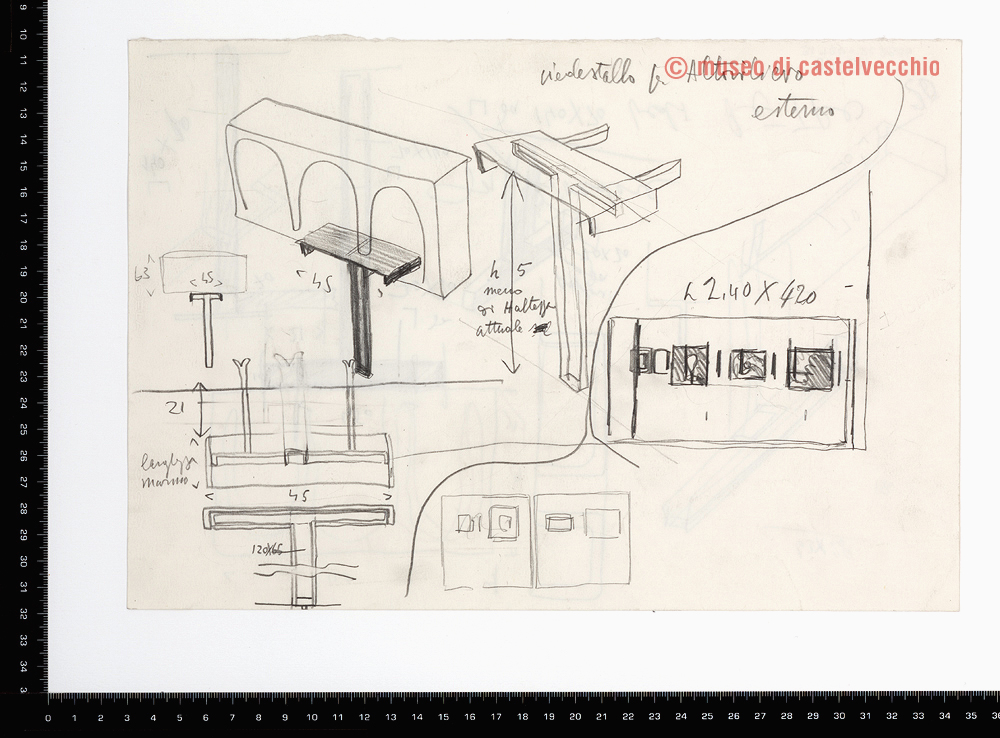 © museo di castelvecchio
piedestallo per Altorilievo
esterno
h 2,40 X 420
63
45
45
h 5
meno
attuale
21
larghezza
marmo
45
120X65
9
10
11
12
13
14
15
16
17
18
19
20
21
22
23
24
25
26
27
28
29
30
31
32
33
34
0 1 2 3 4 5 6 7 8 9 10 11 12 13 14 15 16 17 18 19 20 21 22 23 24 25 26 27 28 29 30 31 32 33 34 35